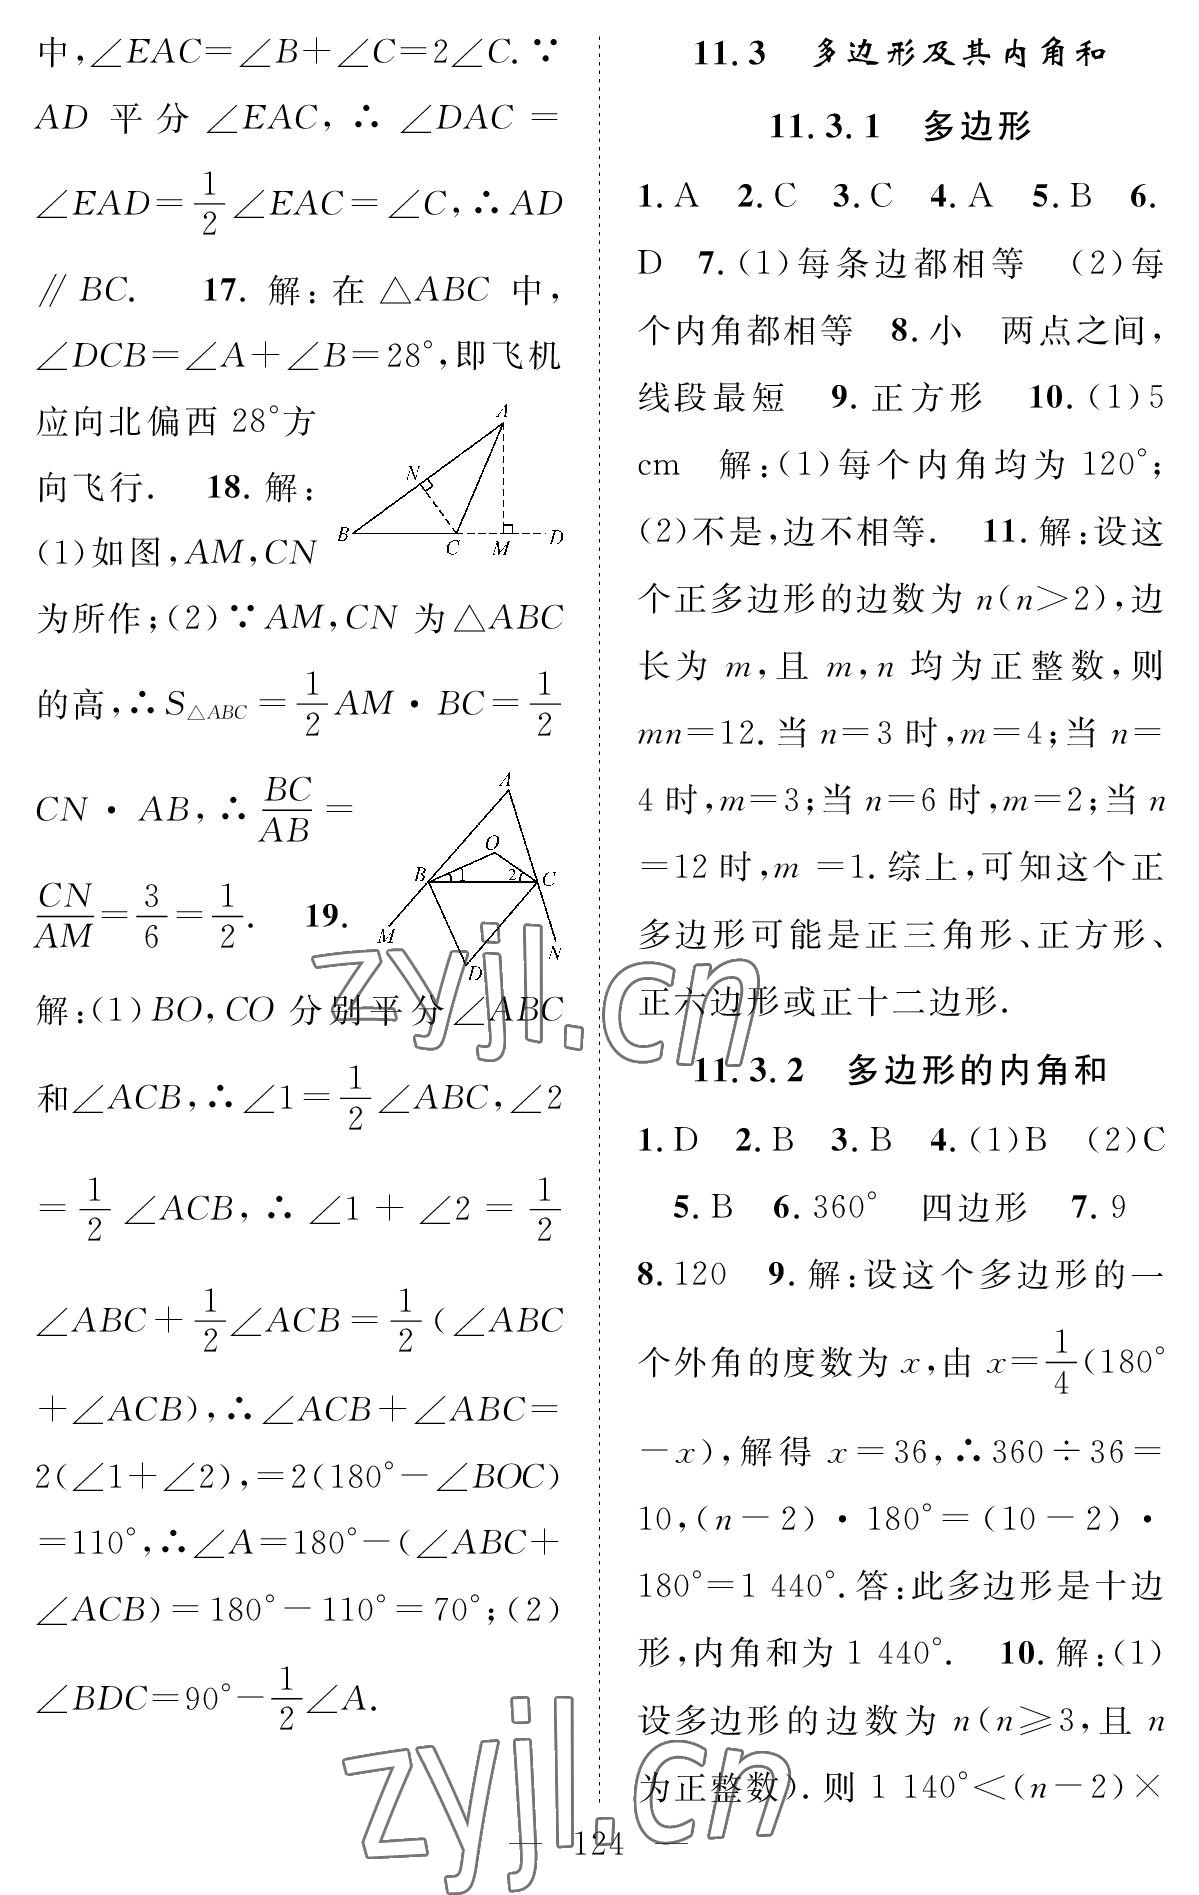 中,∠EAC=∠B+∠C=2∠C.∵
AD 平分 ∠EAC, ∴ ∠DAC =
∠EAD=1/2∠EAC=∠C,∴AD
∥BC. 17. 解:在 △ABC 中,
∠DCB=∠A+∠B=28°,即飞机
应向北偏西 28°方
向飞行. 18.解:
(1)如图,AM,CN
A
N
B
C
M
D
为所作;(2)∵AM,CN 为△ABC
的高,∴S△ABC=1/2AM·BC=1/2
CN·AB,∴BC/AB=
CN/AM=3/6=1/2. 19.
A
O
B
1
2
C
M
D
N
解:(1)BO,CO 分别平分∠ABC
和∠ACB,∴∠1=1/2∠ABC,∠2
=1/2∠ACB,∴∠1+∠2=1/2
∠ABC+1/2∠ACB=1/2(∠ABC
+∠ACB),∴∠ACB+∠ABC=
2(∠1+∠2),=2(180°-∠BOC)
=110°,∴∠A=180°-(∠ABC+
∠ACB)=180°-110°=70°;(2)
∠BDC=90°-1/2∠A.
11.3 多边形及其内角和
11.3.1 多边形
1.A 2.C 3.C 4.A 5.B 6.
D 7.(1)每条边都相等 (2)每
个内角都相等 8.小 两点之间,
线段最短 9.正方形 10.(1)5
cm 解:(1)每个内角均为 120°;
(2)不是,边不相等. 11.解:设这
个正多边形的边数为 n(n>2),边
长为 m,且 m,n 均为正整数,则
mn=12.当 n=3 时,m=4;当 n=
4 时,m=3;当 n=6 时,m=2;当 n
=12 时,m =1.综上,可知这个正
多边形可能是正三角形、正方形、
正六边形或正十二边形.
11.3.2 多边形的内角和
1.D 2.B 3.B 4.(1)B (2)C
5.B 6.360° 四边形 7.9
8.120 9.解:设这个多边形的一
个外角的度数为 x,由 x=1/4(180°
-x),解得 x=36,∴360÷36=
10,(n-2)·180°=(10-2)·
180°=1 440°.答:此多边形是十边
形,内角和为 1 440°. 10.解:(1)
设多边形的边数为 n(n⩾3,且 n
为正整数).则 1 140°<(n-2)×
— 124 —
zyjl.cn
zyjl.cn